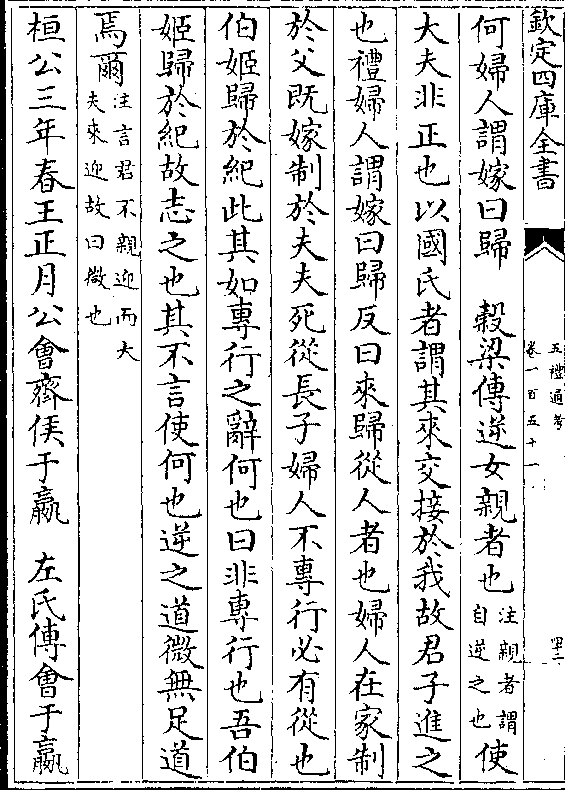 欽定四庫全書
五禮通考
卷一百五十一
何婦人謂嫁曰歸　穀梁傳逆女親者也注親者謂自逆之也使
大夫非正也以國氏者謂其來交接於我故君子進之
也禮婦人謂嫁曰歸反曰來歸從人者也婦人在家制
於父既嫁制於夫夫死從長子婦人不專行必有從也
伯姬歸於紀此其如專行之辭何也曰非專行也吾伯
姬歸於紀故志之也其不言使何也逆之道微無足道
焉爾注言君不親迎而大夫來迎故曰微也
桓公三年春王正月公會齊侯于嬴　左氏傳會于嬴